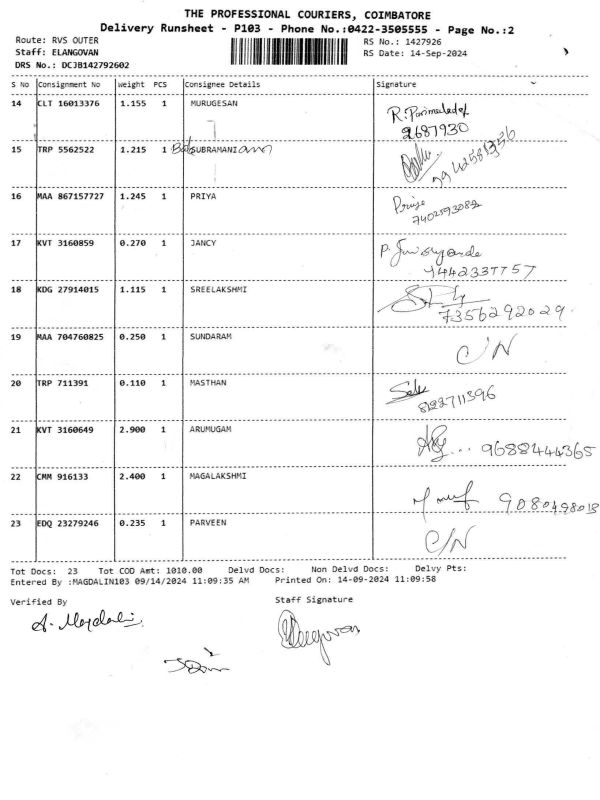 THE PROFESSIONAL COURIERS, COIMBATORE
Delivery Runsheet - P103 - Phone No.:0422-3505555 - Page No.:2
Route: RVS OUTER RS No.: 1427926
Staff: ELANGOVAN RS Date: 14-Sep-2024
DRS No.: DCJB142792602
S No Consignment No Weight PCS Consignee Details Signature
14 CLT 16013376 1.155 1 MURUGESAN
2687930
15 TRP 5562522 1.215 1 SUBRAMANI
16 MAA 867157727 1.245 1 PRIYA Priya
7402593082
17 KVT 3160859 0.270 1 JANCY
9442337757
18 KDG 27914015 1.115 1 SREELAKSHMI
7356292029
19 MAA 704760825 0.250 1 SUNDARAM C/N
20 TRP 711391 0.110 1 MASTHAN
21 KVT 3160649 2.900 1 ARUMUGAM 9688444365
22 CMM 916133 2.400 1 MAGALAKSHMI
23 EDQ 23279246 0.235 1 PARVEEN C/N
Tot Docs: 23 Tot COD Amt: 1010.00 Delvd Docs: Non Delvd Docs: Delvy Pts:
Entered By :MAGDALIN103 09/14/2024 11:09:35 AM Printed On: 14-09-2024 11:09:58
Verified By Staff Signature